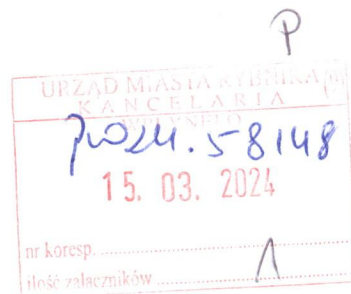 P
URZĄD MIASTA RYBNIKA
KANCELARIA
WPŁYNĘŁO
58148
15. 03. 2024
nr koresp.
1
ilość załączników